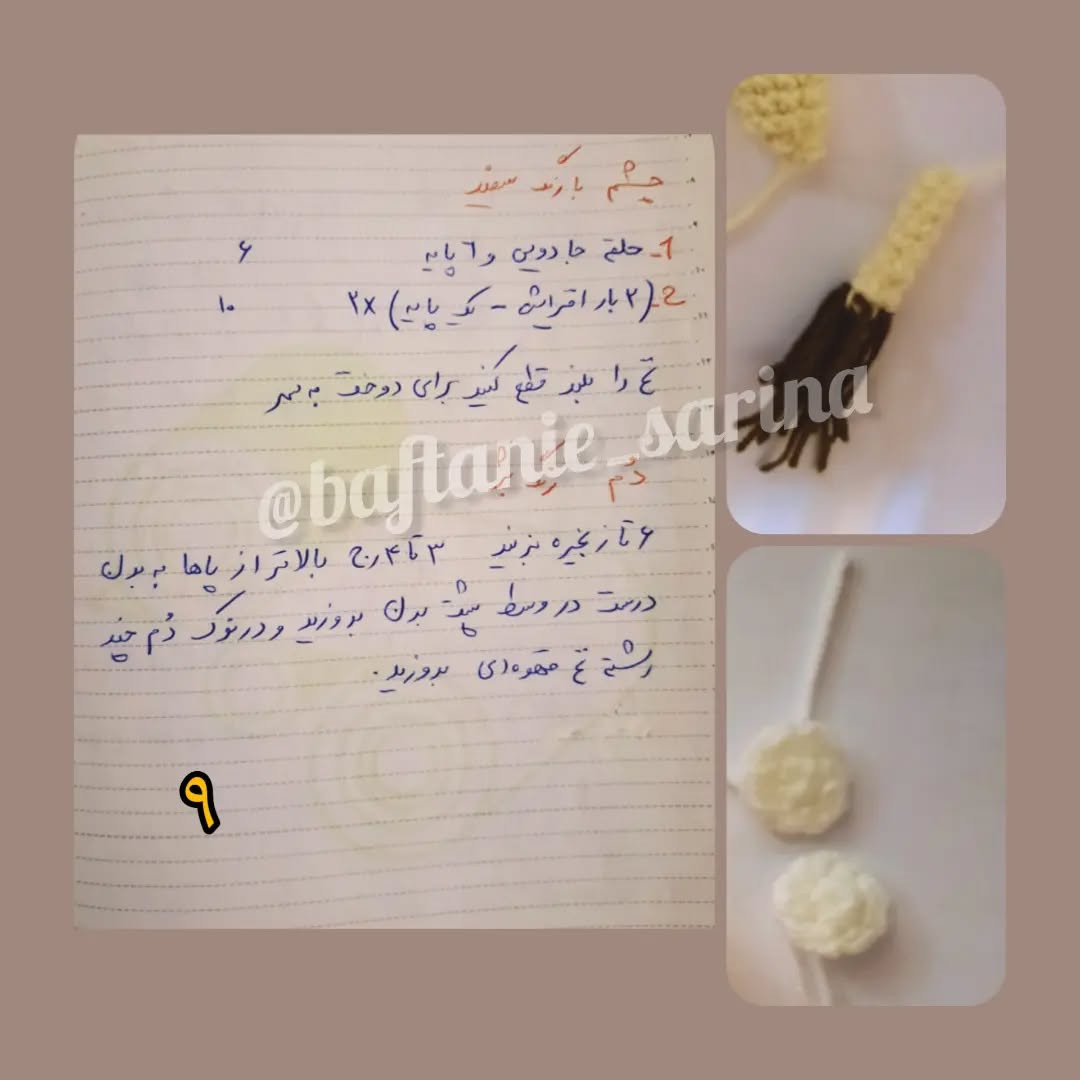 چشم با رنگ سفید
1- حلقه جادویی و ٦ پایه ۶
2- (۲ بار افزایش - یک پایه) ۲x ۱۰
نخ را بلند قطع کنید برای دوخت به سر
@baftanie_sarina
دُم رنگ
۶ تا زنجیره بزنید ۳ تا ۴ رج بالاتر از پاها به بدن
درست در وسط پشت بدن بدوزید و در نوک دُم چند
رشته نخ قهوه‌ای بدوزید.
۹